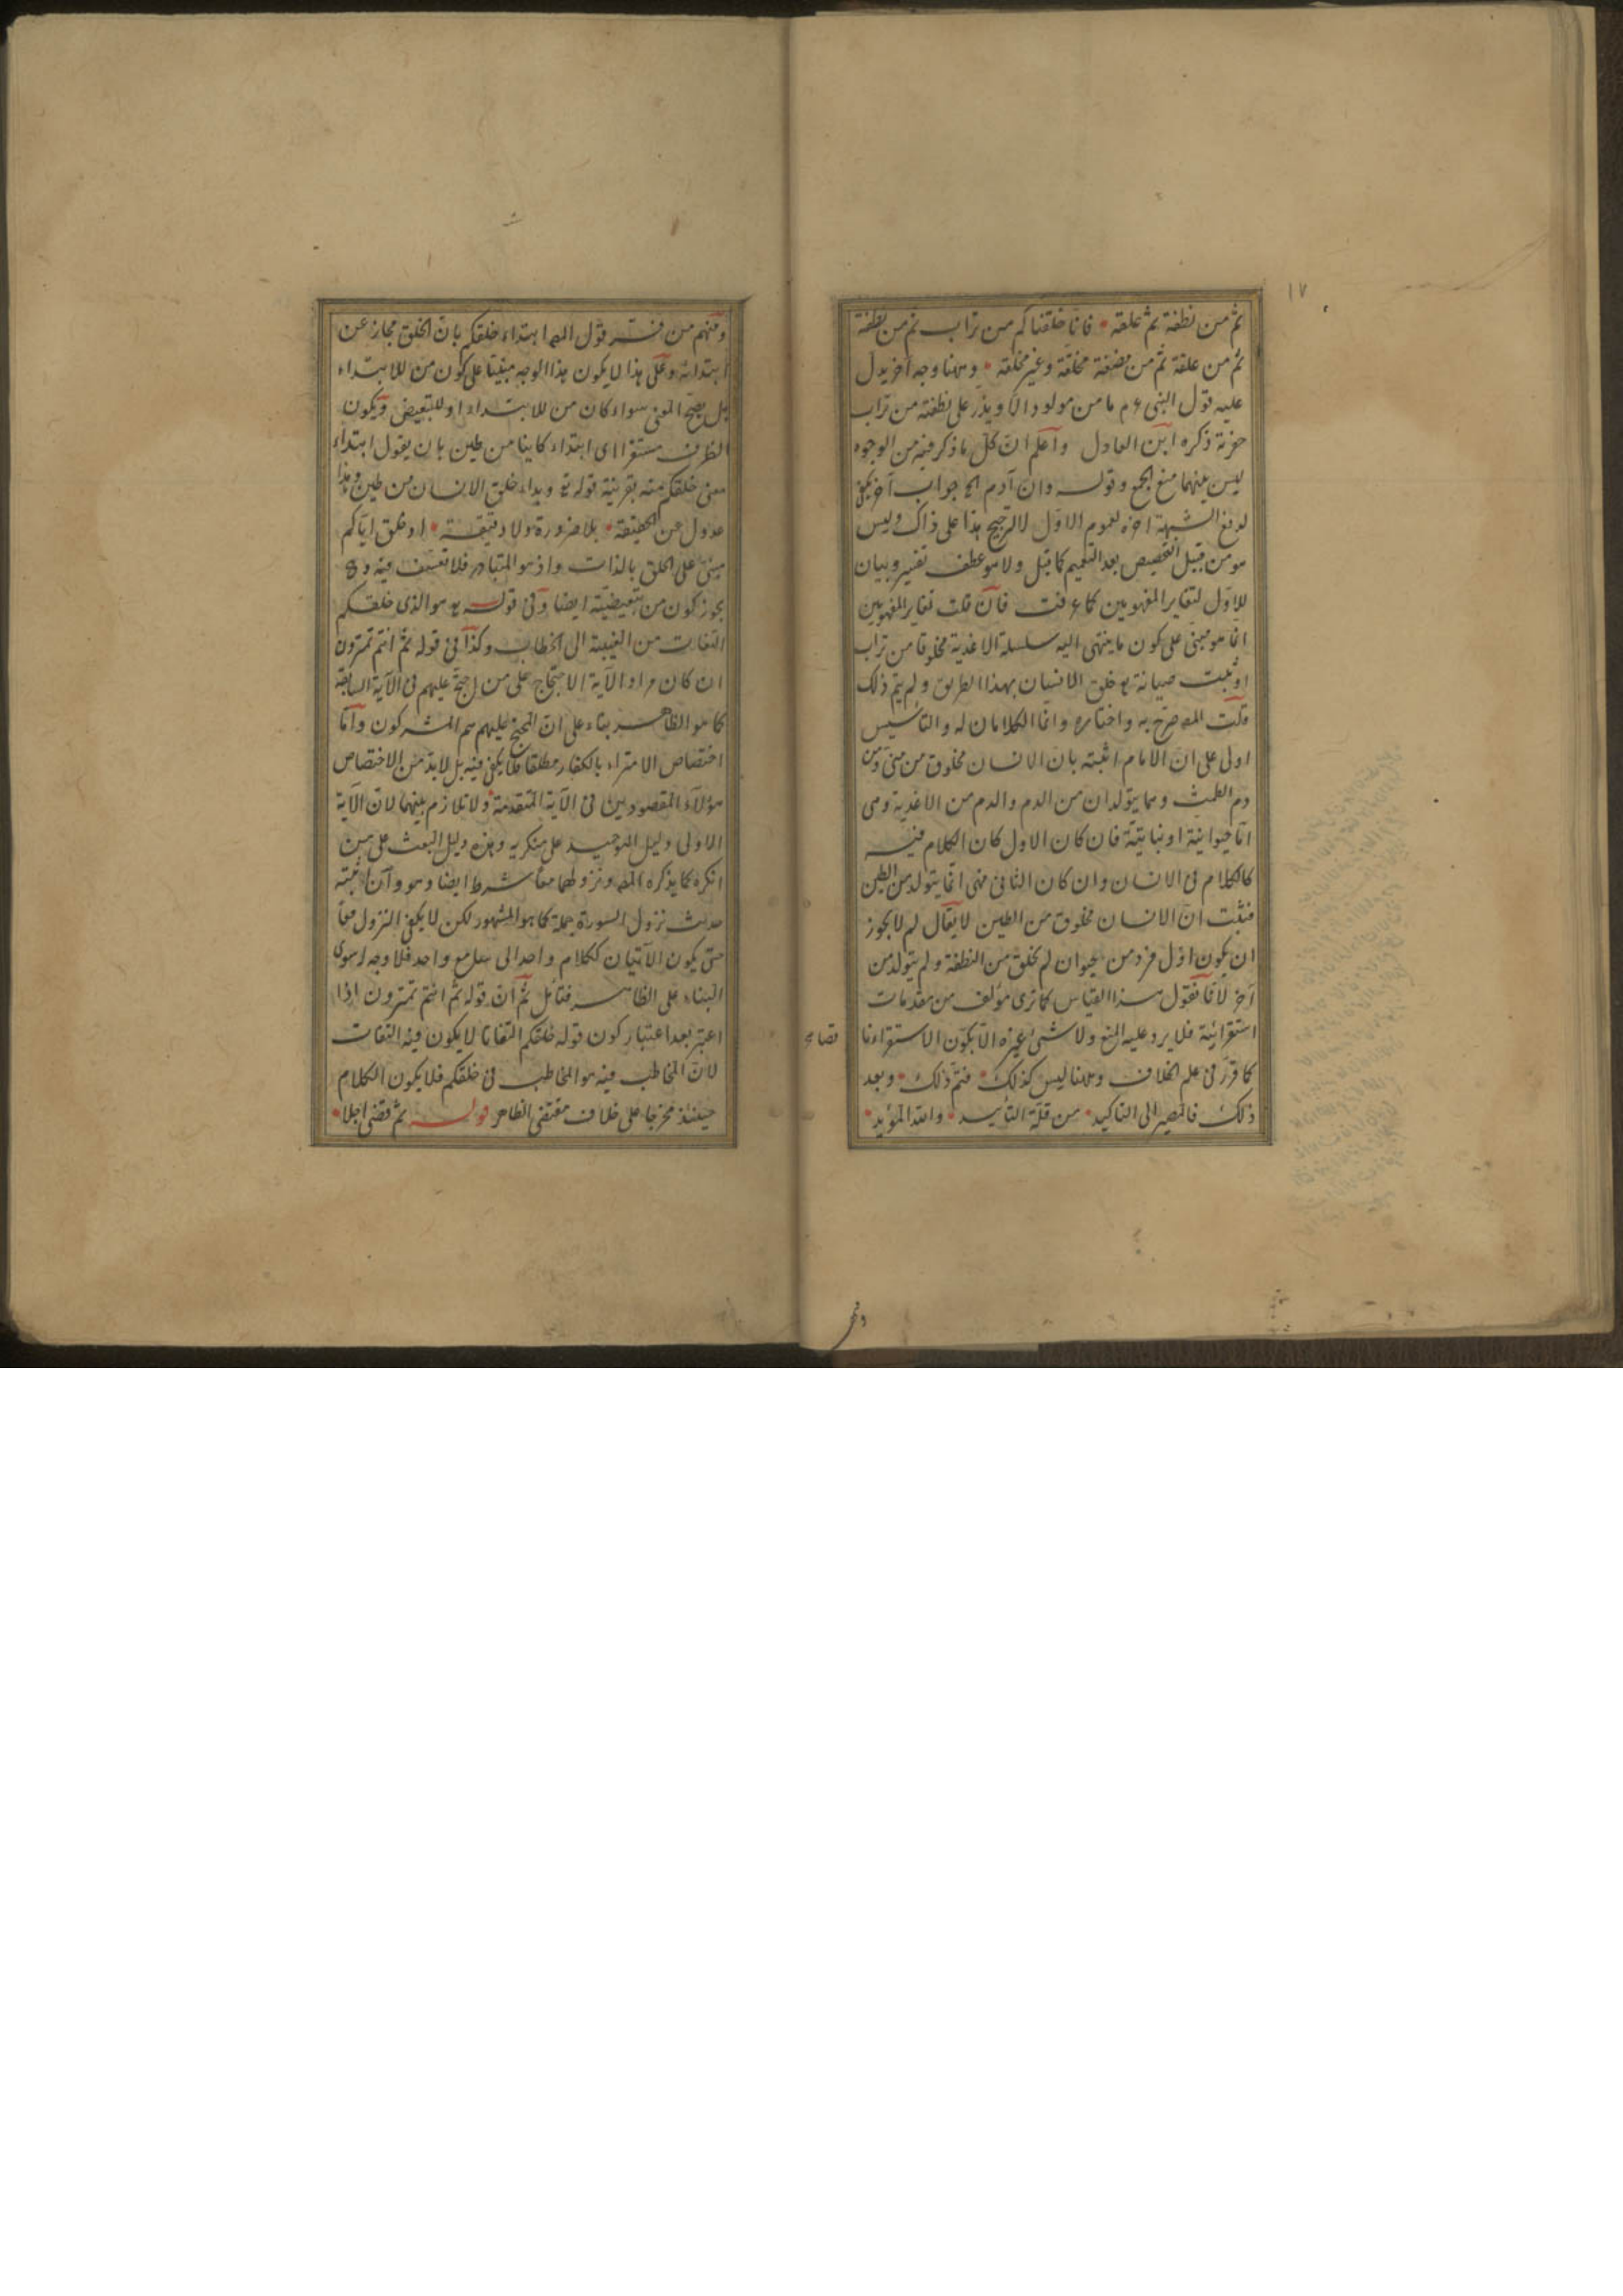 ١٧
ثم من نطفة ثم علقة فانا خلقناكم من تراب ثم من نطفة
ثم من علقة ثم من مضغة مخلقة وغير مخلقة وههنا وجه آخر يدل
عليه قول النبي ءم ما من مولود الا ويذر على نطفته من تراب
حفرته ذكره ابن العادل واعلم ان كل ما ذكر فيه من الوجوه
ليس بينهما منع الجمع وقوله وان آدم الخ جواب آخر
لدفع الشبهة اخره لعموم الاول لا لترجيح هذا على ذاك وليس
هو من قبيل التخصيص بعد التعميم كما قيل ولا هو عطف تفسير وبيان
للاول لتغاير المفهومين كما عرفت فان قلت تغاير المفهومين
انما هو مبنى على كون ما ينتهى اليه سلسلة الاغذية مخلوقا من تراب
خلق الانسان بهذا الطريق ولم يتم ذلك
قلت المص صرح به واختاره وانما الكلامان له والتأسيس
اولى على ان الامام اثبته بان الانسان مخلوق من منى ومن
دم الطمث وهما يتولدان من الدم والدم من الاغذية وهى
اما حيوانية او نباتية فان كان الاول كان الكلام فيه
كالكلام فى الانسان وان كان الثانى فهى انما يتولد من الطين
فثبت ان الانسان مخلوق من الطين لا يقال لم لا يجوز
ان يكون اول فرد من حيوان لم يخلق من النطفة ولم يتولد من
آخر لانا نقول هذا القياس كما ترى مؤلف من مقدمات
استقرائية فلا يرد عليه المنع ولا شئ غيره الا بكون الاستقراء نا
قصا
كما قرر فى علم الخلاف وههنا ليس كذلك فتم ذلك وبعد
ذلك فالمصير الى التاكيد من قلة التأييد والله المؤيد
ومنهم من فسر قول المص ابتداء خلقكم بان الخلق مجاز عن
ابتدائه وعلى هذا لا يكون هذا الوجه مبنيا على كون من للابتداء
بل يصح المعنى سواء كان من للابتداء او للتبعيض ويكون
الظرف مستقرا اى ابتداء كاينا من طين بان يقول ابتداء
معنى خلقكم منه بقرينة قوله تع وبداء خلق الانسان من طين وهذا
عدول عن الحقيقة بلا ضرورة ولا دقيقة او خلق اياكم
مبنى على الخلق بالذات واذ هو المتبادر فلا تعسف فيه و
يجوز كون من تبعيضية ايضا وفى قوله تع هو الذى خلقكم
التفات من الغيبة الى الخطاب وكذا فى قوله ثم انتم تمترون
ان كان مراد الآية الاحتجاج على من احتج عليهم فى الآية السابقة
كما هو الظاهر بناء على ان المحتج عليهم هم المشركون واما
اختصاص الامتراء بالكفار مطلقا فلا يكفى فيه بل لابد من الاختصاص
هؤلاء المقصودين فى الآية المتقدمة ولا تلازم بينهما لان الآية
الاولى دليل التوحيد على منكريه وهذه دليل البعث على من
انكره كما يذكره المص ونزولهما معا شرط ايضا وهو وان اثبته
حديث نزول السورة جملة كما هو المشهور لكن لا يكفى النزول معا
حتى يكون الآيتان ككلام واحد الى سامع واحد فلا وجه سوى
البناء على الظاهر فتأمل ثم ان قوله ثم انتم تمترون اذا
اعتبر بعد اعتبار كون قوله خلقكم التفاتا لا يكون فيه التفات
لان المخاطب فيه هو المخاطب فى خلقكم فلا يكون الكلام
حينئذ مخرجا على خلاف مقتضى الظاهر قوله ثم قضى اجلا